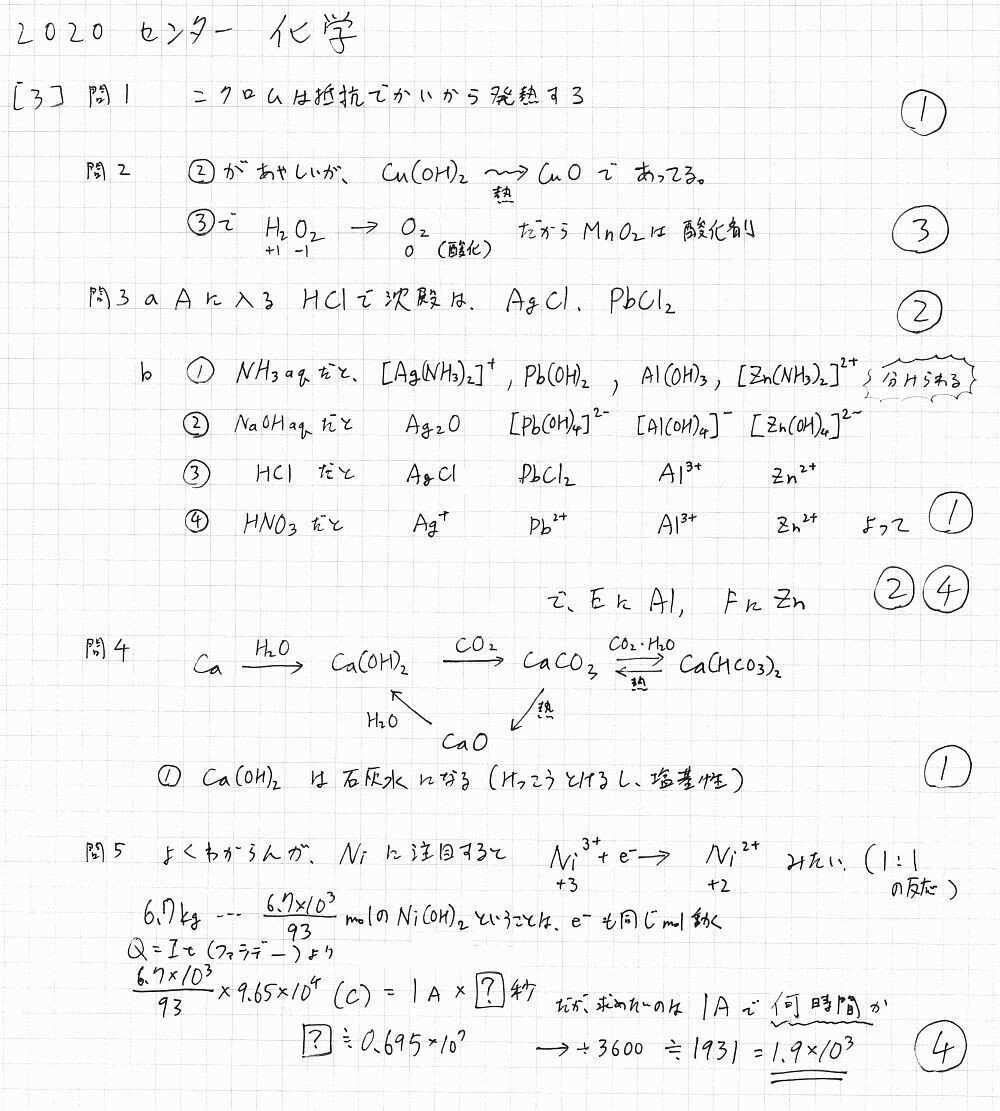 2020 センター 化学
[3] 問1 ニクロムは抵抗でかいから発熱する ①
問2 ②があやしいが、 Cu(OH)₂ ⟿ CuO で あってる。
熱
③で H₂O₂ → O₂ だから MnO₂は 酸化剤 ③
+1 -1 0 (酸化)
問3 a Aに入る HClで沈殿は、 AgCl、 PbCl₂ ②
b ① NH₃aqだと、 [Ag(NH₃)₂]⁺ , Pb(OH)₂ , Al(OH)₃ , [Zn(NH₃)₂]²⁺ 分けられる
② NaOHaqだと Ag₂O [Pb(OH)₄]²⁻ [Al(OH)₄]⁻ [Zn(OH)₄]²⁻
③ HCl だと AgCl PbCl₂ Al³⁺ Zn²⁺
④ HNO₃だと Ag⁺ Pb²⁺ Al³⁺ Zn²⁺ よって ①
で、Eに Al, Fに Zn ②④
問4 Ca →(H₂O) Ca(OH)₂ →(CO₂) CaCO₃ ⇄(CO₂・H₂O) Ca(HCO₃)₂
熱
H₂O 熱
CaO
① Ca(OH)₂ は石灰水になる (けっこうとけるし、塩基性) ①
問5 よくわからんが、 Niに注目すると Ni³⁺ + e⁻ → Ni²⁺ みたい (1:1
+3 +2 の反応)
6.7kg … 6.7×10³/93 molのNi(OH)₂ということは、e⁻も同じmol動く
Q=It (ファラデー) より
6.7×10³/93 × 9.65×10⁴ (C) = 1A × ? 秒
だが、求めたいのは 1Aで 何時間か
? ≒ 0.695×10⁷ → ÷3600 ≒ 1931 = 1.9×10³ ④